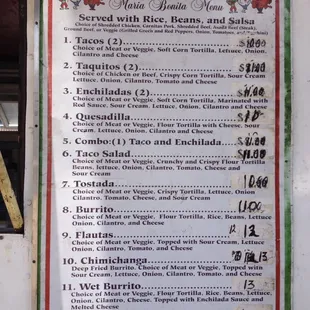 María Bonita Menu
Served with Rice, Beans, and Salsa
Choice of Shredded Chicken, Carnitas Pork, Shredded Beef, Asada Beef (Steak),
Ground Beef, or Veggie (Grilled Green and Red Peppers, Onion, Tomatoes, and
1. Tacos (2)
Choice of Meat or Veggie, Soft Corn Tortilla, Lettuce,
Onion, Cilantro, Tomato and Cheese
2. Taquitos (2)
Choice of Chicken or Beef, Crispy Corn Tortilla, Sour Cream
Lettuce, Onion, Cilantro, Tomato and Cheese
3. Enchiladas (2) $11.00
Choice of Meat or Veggie, Soft Corn Tortilla, Marinated with
Red Sauce, Sour Cream, Lettuce, Onion, Cilantro and Cheese
4. Quesadilla
Choice of Meat or Veggie, Flour Tortilla with Cheese, Sour
Cream, Lettuce, Onion, Cilantro, Tomato and Cheese
5. Combo:(1) Taco and Enchilada
6. Taco Salad $11.00
Choice of Meat or Veggie, Crunchy and Crispy Flour Tortilla
Beans, lettuce, Onion, Cilantro, Tomato, Cheese and
Sour Cream
7. Tostada 10.00
Choice of Meat or Veggie, Crispy Tortilla, Lettuce, Onion
Cilantro, Tomato, Cheese, and Sour Cream
8. Burrito 11.00
Choice of Meat or Veggie, Flour Tortilla, Rice, Beans, Lettuce
Onion, Cilantro, and Cheese
9. Flautas 12
Choice of Meat or Veggie, Topped with Sour Cream, Lettuce
Onion, Cilantro, Tomato, and Cheese
10. Chimichanga 13
Deep Fried Burrito, Choice of Meat or Veggie, Topped with
Sour Cream, Lettuce, Onion, Cilantro, Tomato and Cheese
11. Wet Burrito 13
Choice of Meat or Veggie, Flour Tortilla, Rice, Beans, Lettuce,
Onion, Cilantro, Cheese, Topped with Enchilada Sauce and
Melted Cheese